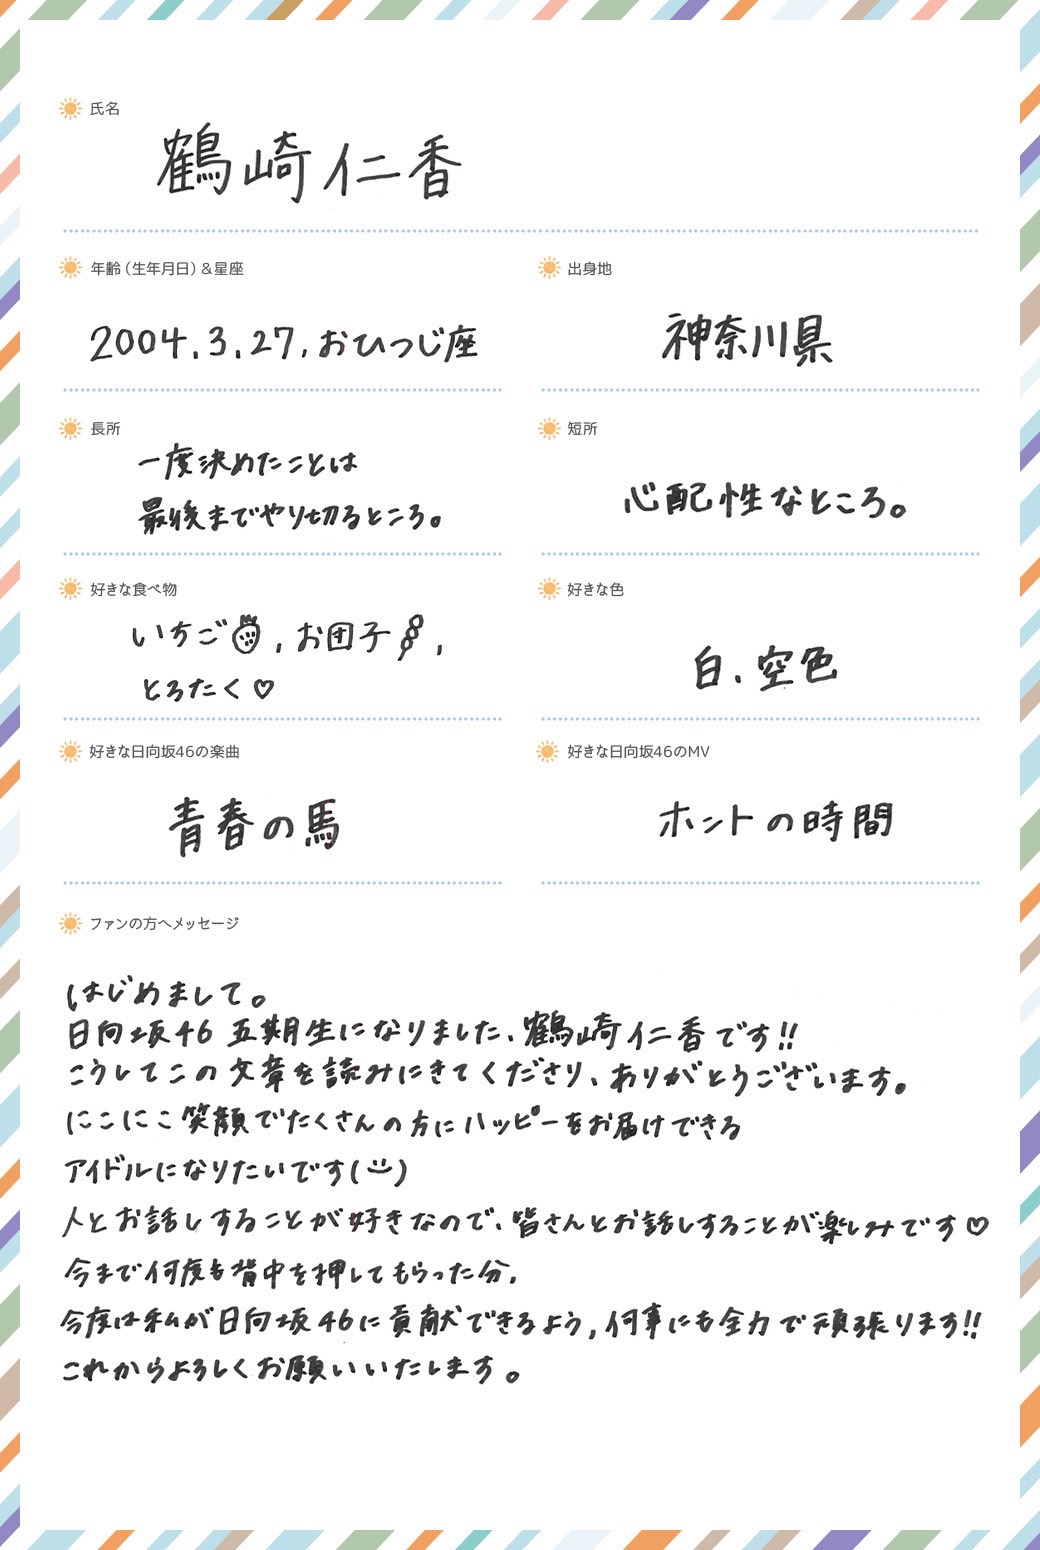 氏名
鶴崎仁香
年齢（生年月日）＆星座
2004.3.27, おひつじ座
出身地
神奈川県
長所
一度決めたことは
最後までやり切るところ。
短所
心配性なところ。
好きな食べ物
いちご, お団子,
とろたく♡
好きな色
白、空色
好きな日向坂46の楽曲
青春の馬
好きな日向坂46のMV
ホントの時間
ファンの方へメッセージ
はじめまして。
日向坂46 五期生になりました、鶴崎仁香です!!
こうしてこの文章を読みにきてくださり、ありがとうございます。
にこにこ笑顔でたくさんの方にハッピーをお届けできる
アイドルになりたいです(¨̮)
人とお話しすることが好きなので、皆さんとお話しすることが楽しみです♡
今まで何度も背中を押してもらった分,
今度は私が日向坂46に貢献できるよう, 何事にも全力で頑張ります!!
これからよろしくお願いいたします。